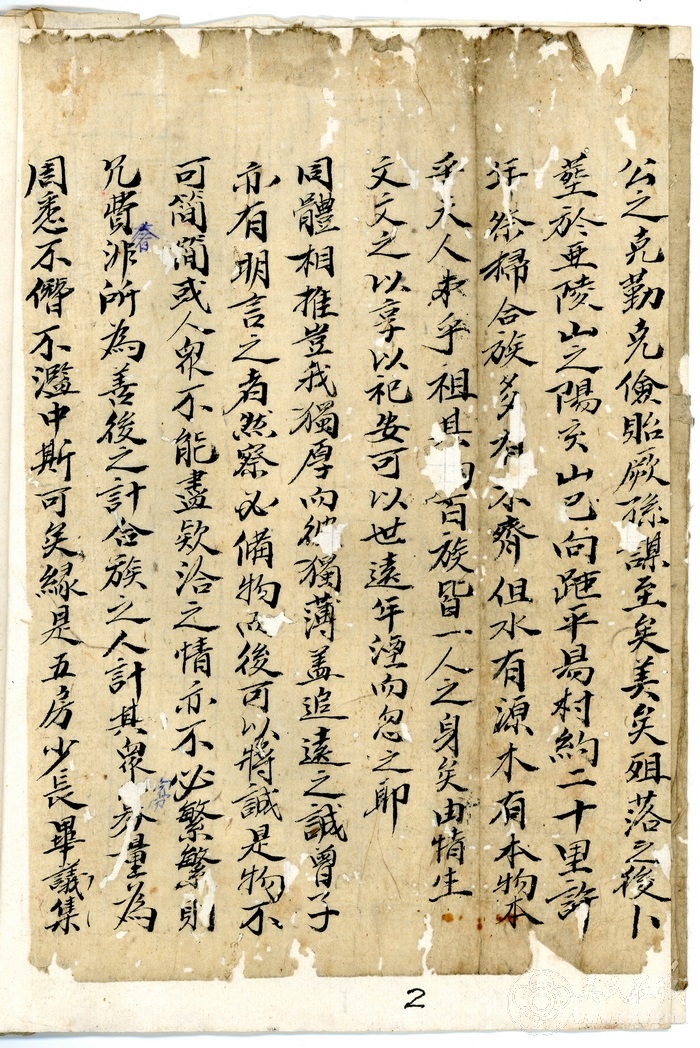 公之克勤克儉貽厥孫謀至矣美矣殂落之後卜
塟於亚陵山之陽亥山巳向距平昜村約二十里許
年祭掃合族多有不齊但水有源木有本物本
乎天人本乎祖其 百族皆一人之身矣由情生
文文之以享以祀安可以世遠年湮而忽之耶
同體相推豈我獨厚而彼獨薄盖追遠之誠曾子
亦有明言之者然祭必備物而後可以將誠是物不
可簡簡或人眾不能盡欵洽之情亦不必繁繁則
冗費非所為善後之計合族之人計其眾 量為
周悉不僭不濫中斯可矣緣是五房少長畢議集
2